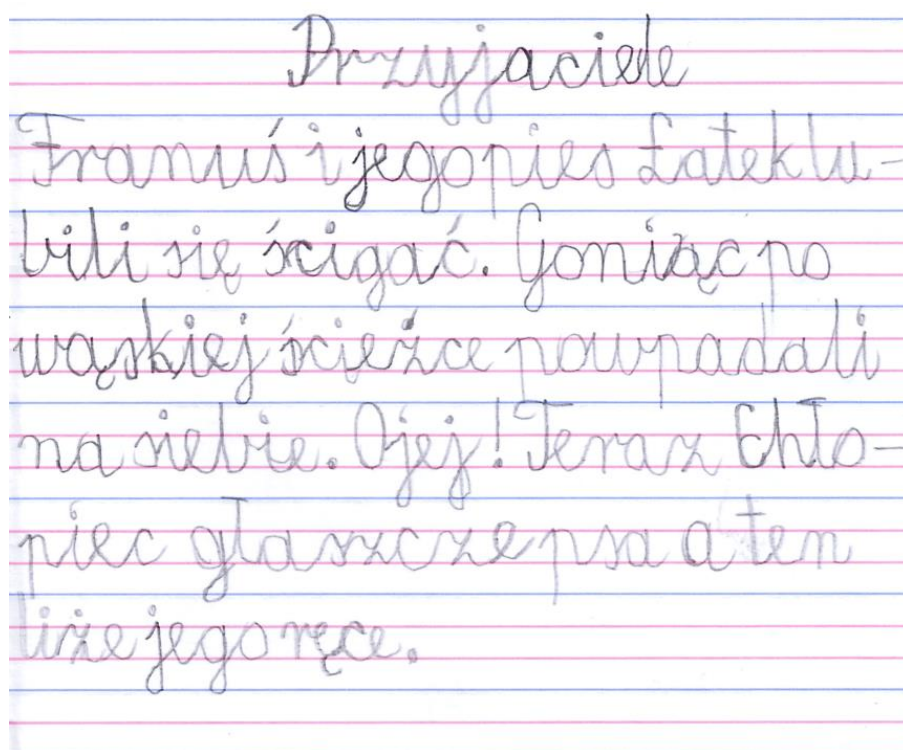 Przyjaciele
Franuś i jego pies Łatek lu-
bili się ścigać. Goniąc po
wąskiej ścieżce powpadali
na siebie. Ojej! Teraz Chło-
piec głaszcze psa a ten
liże jego ręce.